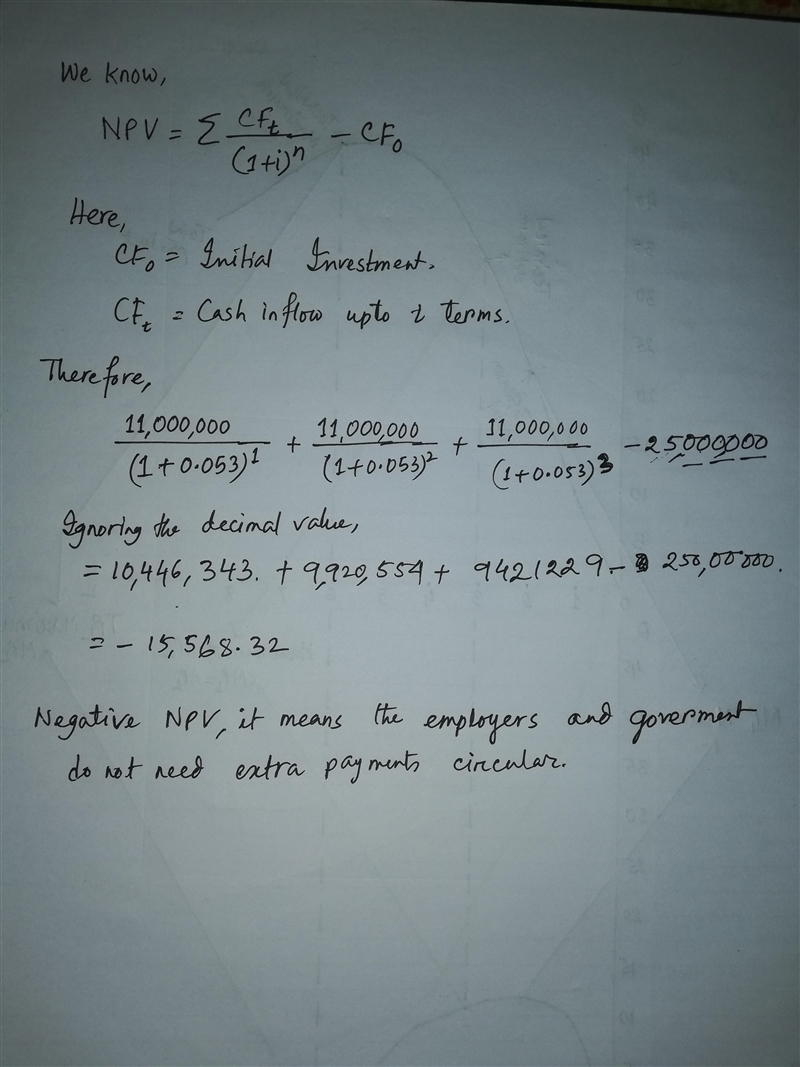 We know,
NPV = Σ CFt/(1+i)^n − CF0
Here,
CF0 = Initial Investment.
CFt = Cash inflow upto t terms.
Therefore,
11,000,000/(1+0.053)^1 + 11,000,000/(1+0.053)^2 + 11,000,000/(1+0.053)^3 − 25,000,000
Ignoring the decimal value,
= 10,446,343. + 9,920,554 + 9421229 − 250,00000.
= − 15,568.32
Negative NPV, it means the employers and goverment
do not need extra payments circular.